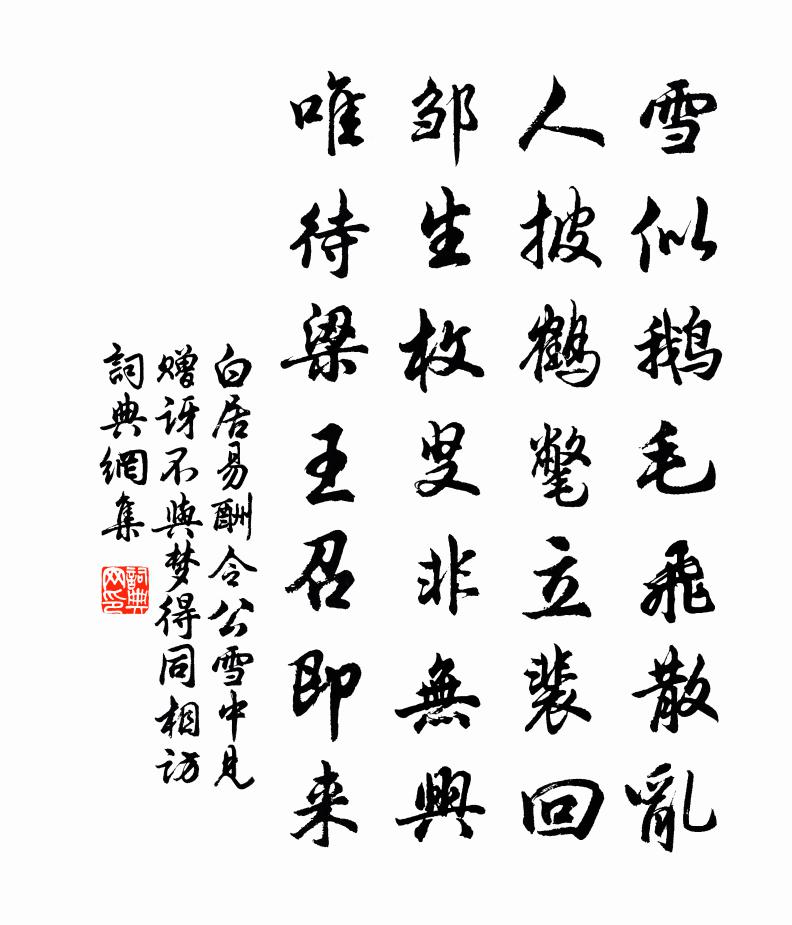 雪似鹅毛飛散亂
人披鶴氅立裴回
邹生枚叟非無興
唯待梁王召即来
白居易酬令公雪中見
赠讶不與梦得同相访
詞典網集
詞典
网印